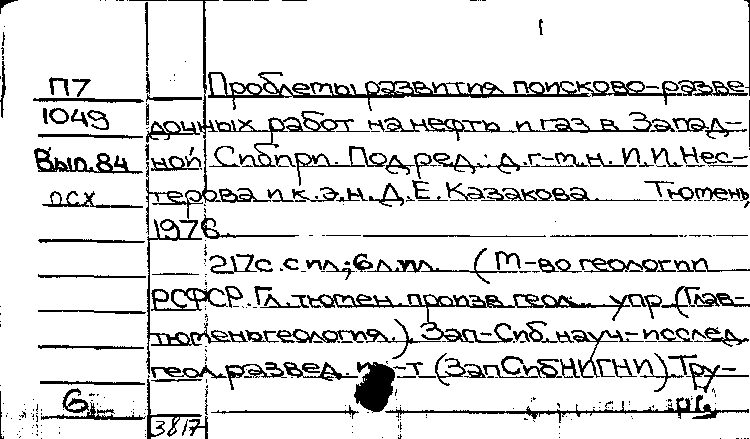 1
П7
Проблемы развития поисково-разве
1049
дочных работ на нефть и газ в Запад-
Вып.84
ной Сибири. Под ред.: д.г-м.н. И.И.Нес-
осх
терова и к.э.н. Д.Е.Казакова. Тюмень,
1976.
217с. с ил; 6л.ил. (М-во геологии
РСФСР. Гл. тюмен. произв. геол. упр (Глав-
тюменьгеология.). Зап-Сиб. науч-исслед.
геол. развед. (ЗапСибНИГНИ) Тру-
6
3817